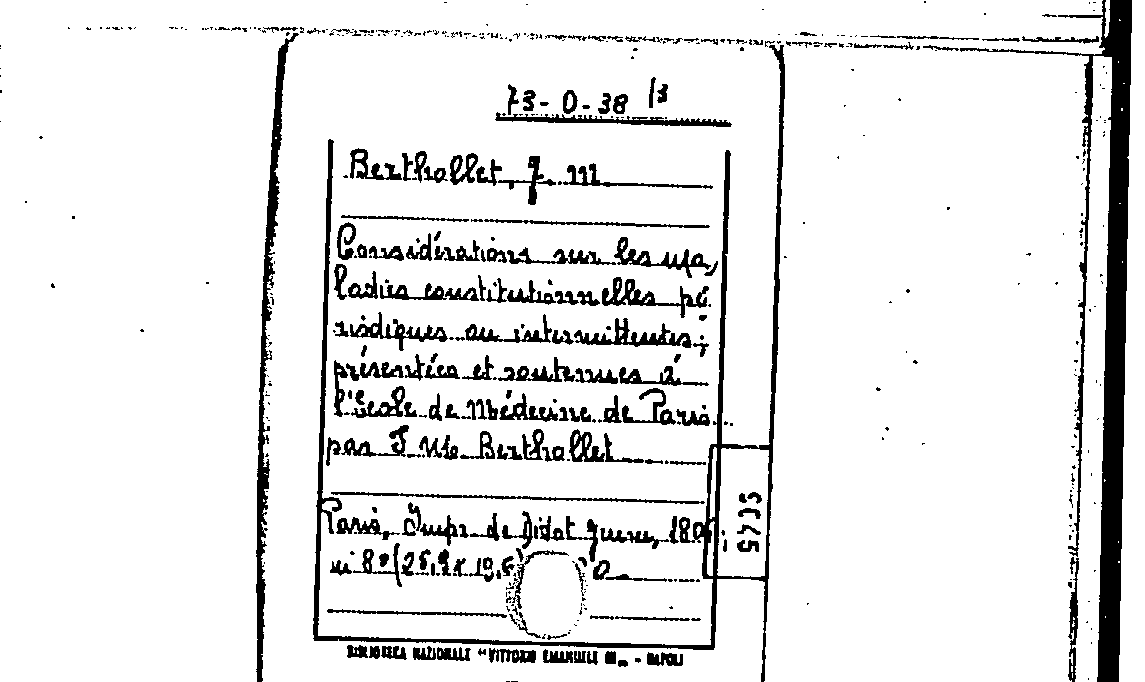 73-0-38 /3
Berthollet, J. M.
Considérations sur les ma,
ladies constitutionnelles pé
riodiques ou intermittentes;
présentées et soutenues à
l'école de Médecine de Paris
par J. M. Berthollet
Paris, Impr. de Didot jeune, 180
in 8° (25,9 x 19,
SC45
BIBLIOTECA NAZIONALE "VITTORIO EMANUELE III" - NAPOLI